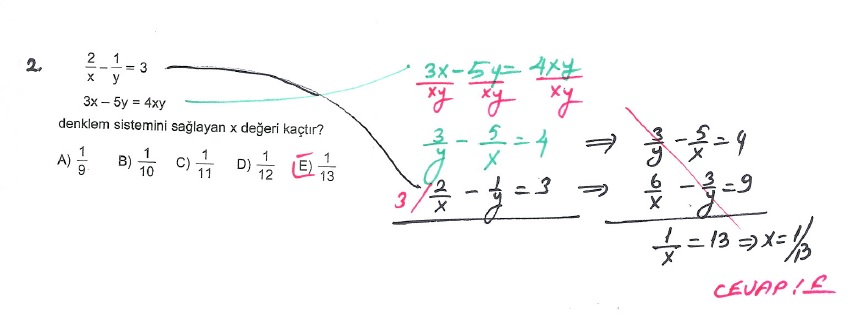 2. 2/x - 1/y = 3
3x – 5y = 4xy
denklem sistemini sağlayan x değeri kaçtır?
A) 1/9 B) 1/10 C) 1/11 D) 1/12 E) 1/13
3x/xy - 5y/xy = 4xy/xy
3/y - 5/x = 4 ⇒ 3/y - 5/x = 4
3/ 2/x - 1/y = 3 ⇒ 6/x - 3/y = 9
1/x = 13 ⇒ x = 1/13
CEVAP: E